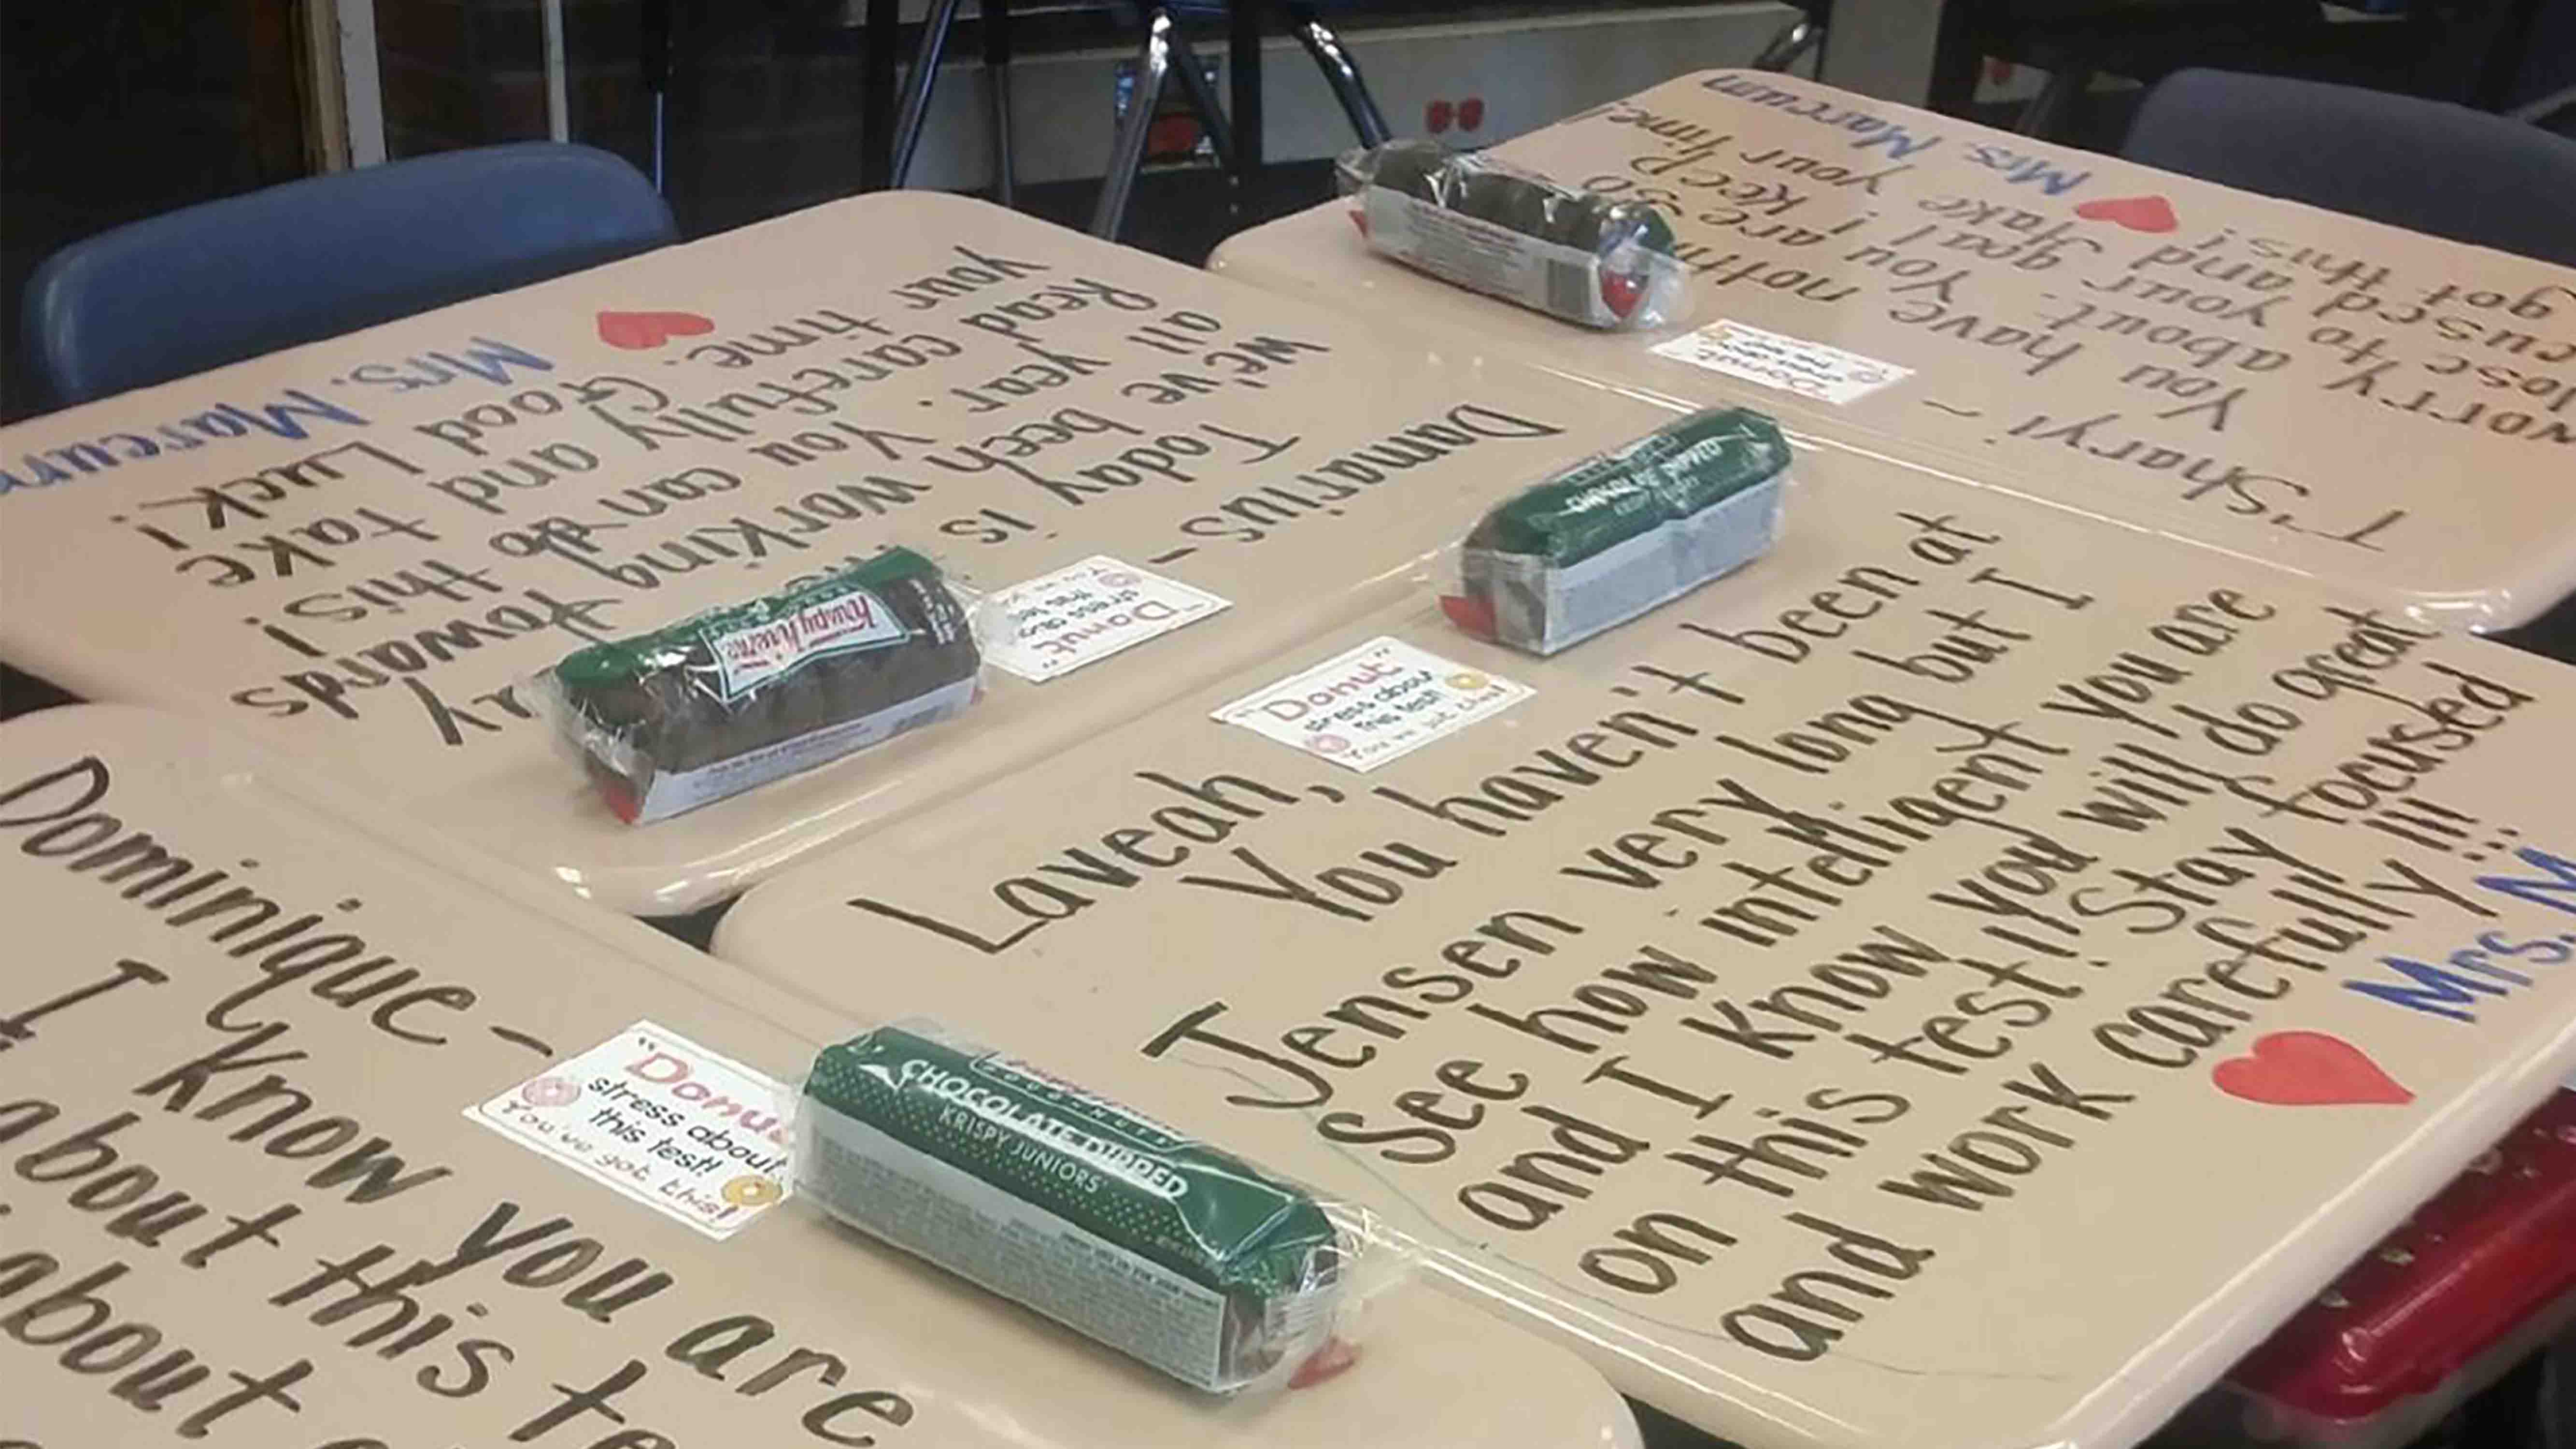 Dominique -
I know you are
about this te
about
"Donut
stress about
this test!
You've got this!
CHOCOLATE DIPPED
KRISPY JUNIORS
Laveah,
You haven't been at
Jensen very long but I
see how intelligent you are
and I know you will do great
on this test! Stay focused
and work carefully!!!
Mrs. M
"Donut"
stress about
this test!
CHOCOLATE DIPPED
Damarius -
Today is
we've been working towards
all year. You can do this!
Read carefully and take
your time. Good Luck!
Mrs. Marcum
"Donut"
stress abo
this tes
Krispy Kreme
T'Sharyl -
You have noth
worry about. You are so
close to your goal I
cused and take your time!
got this!
Mrs. Marcum
Donut